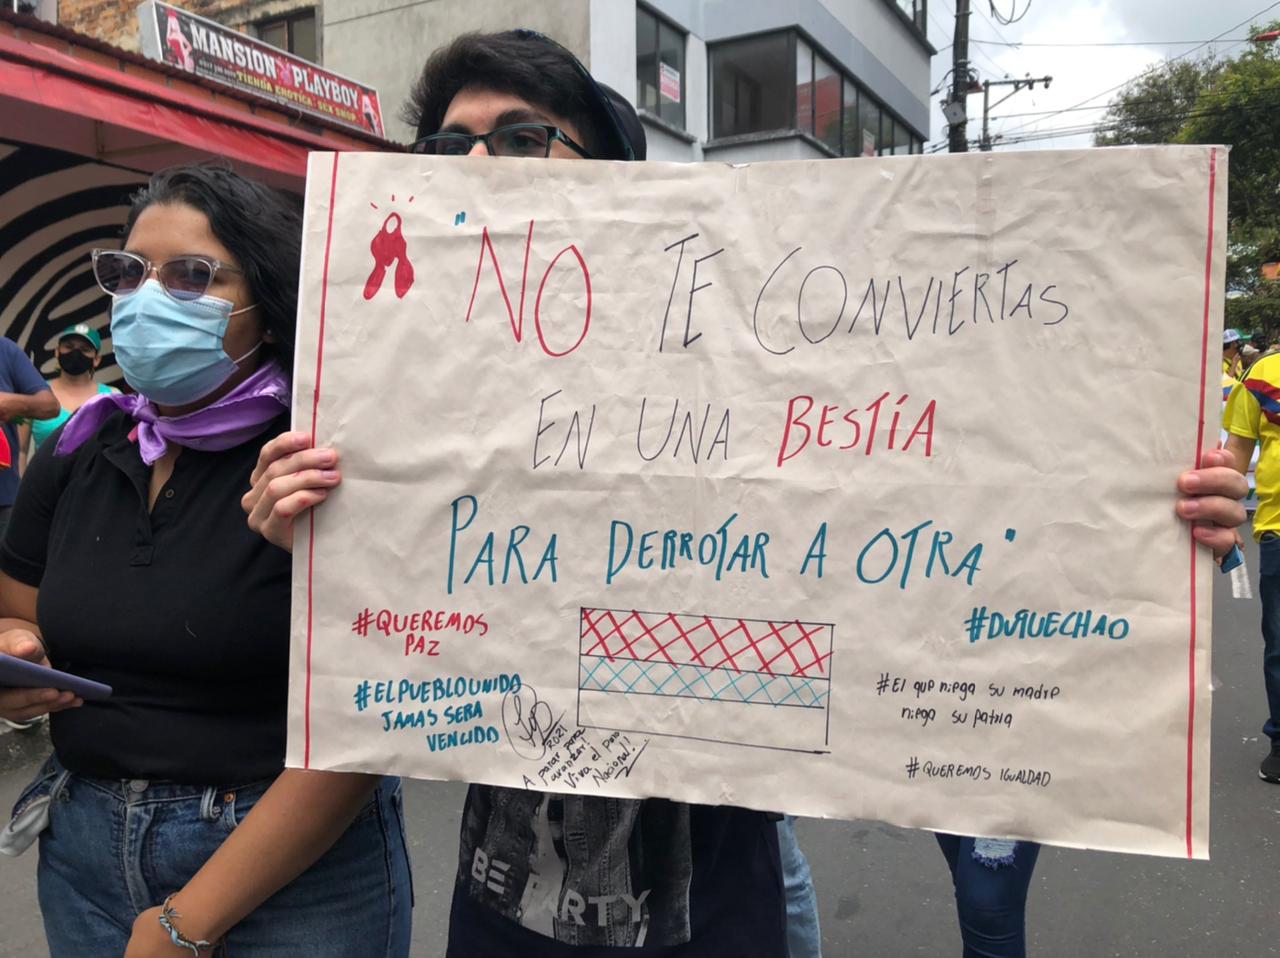 MANSION PLAYBOY
TIENDA EROTICA SEX SHOP
"NO TE CONVIERTAS
EN UNA BESTÍA
PARA DERROTAR A OTRA"
#QUEREMOS
PAZ
#DUQUECHAO
#ELPUEBLOUNIDO
JAMAS SERA
VENCIDO
2021
A parar para
avanzar!
Viva el paro
Nacional!
#El que niega su madre
niega su patria
#QUEREMOS IGUALDAD
BE
PARTY